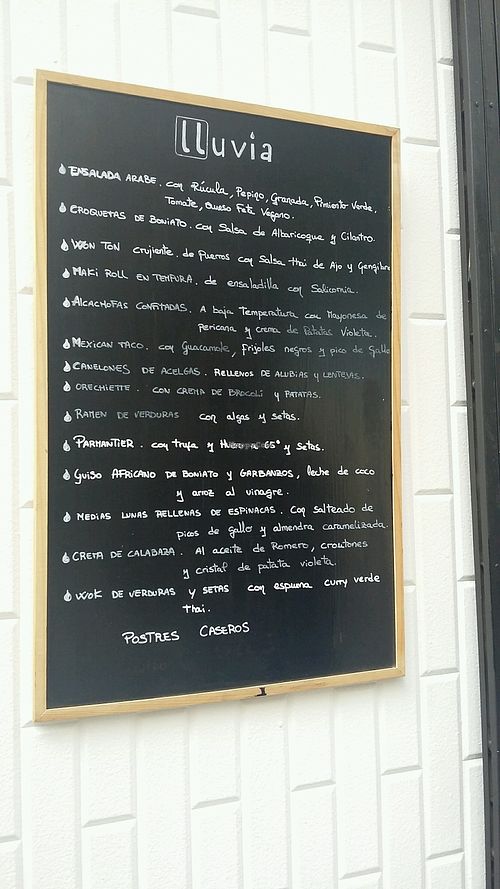 lluvia
ENSALADA ARABE. con Rúcula, Pepino, Granada, Pimiento Verde,
Tomate, Queso Feta Vegano.
CROQUETAS DE BONIATO. con Salsa de Albaricoque y Cilantro.
WON TON crujiente. de Puerros con Salsa thai de Ajo y Gengibre
MAKI ROLL EN TEMPURA. de ensaladilla con Salicornia.
ALCACHOFAS CONFITADAS. A baja Temperatura con Mayonesa de
Pericana y crema de Patatas Violeta.
MEXICAN TACO. con Guacamole, Frijoles negros y pico de Gallo
CANELONES DE ACELGAS. RELLENOS DE ALUBIAS y LENTEJAS.
ORECHIETTE. CON CREMA DE BROCOLI y PATATAS.
RAMEN DE VERDURAS con algas y setas.
PARMANTIER. con trufa y Huevo a 65° y Setas.
GUISO AFRICANO DE BONIATO y GARBANZOS, leche de coco
y arroz al vinagre.
MEDIAS LUNAS RELLENAS DE ESPINACAS. Con salteado de
picos de gallo y almendra caramelizada.
CREMA DE CALABAZA. Al aceite de Romero, croutones
y cristal de patata violeta.
WOK DE VERDURAS y SETAS con espuma curry verde
thai.
POSTRES CASEROS